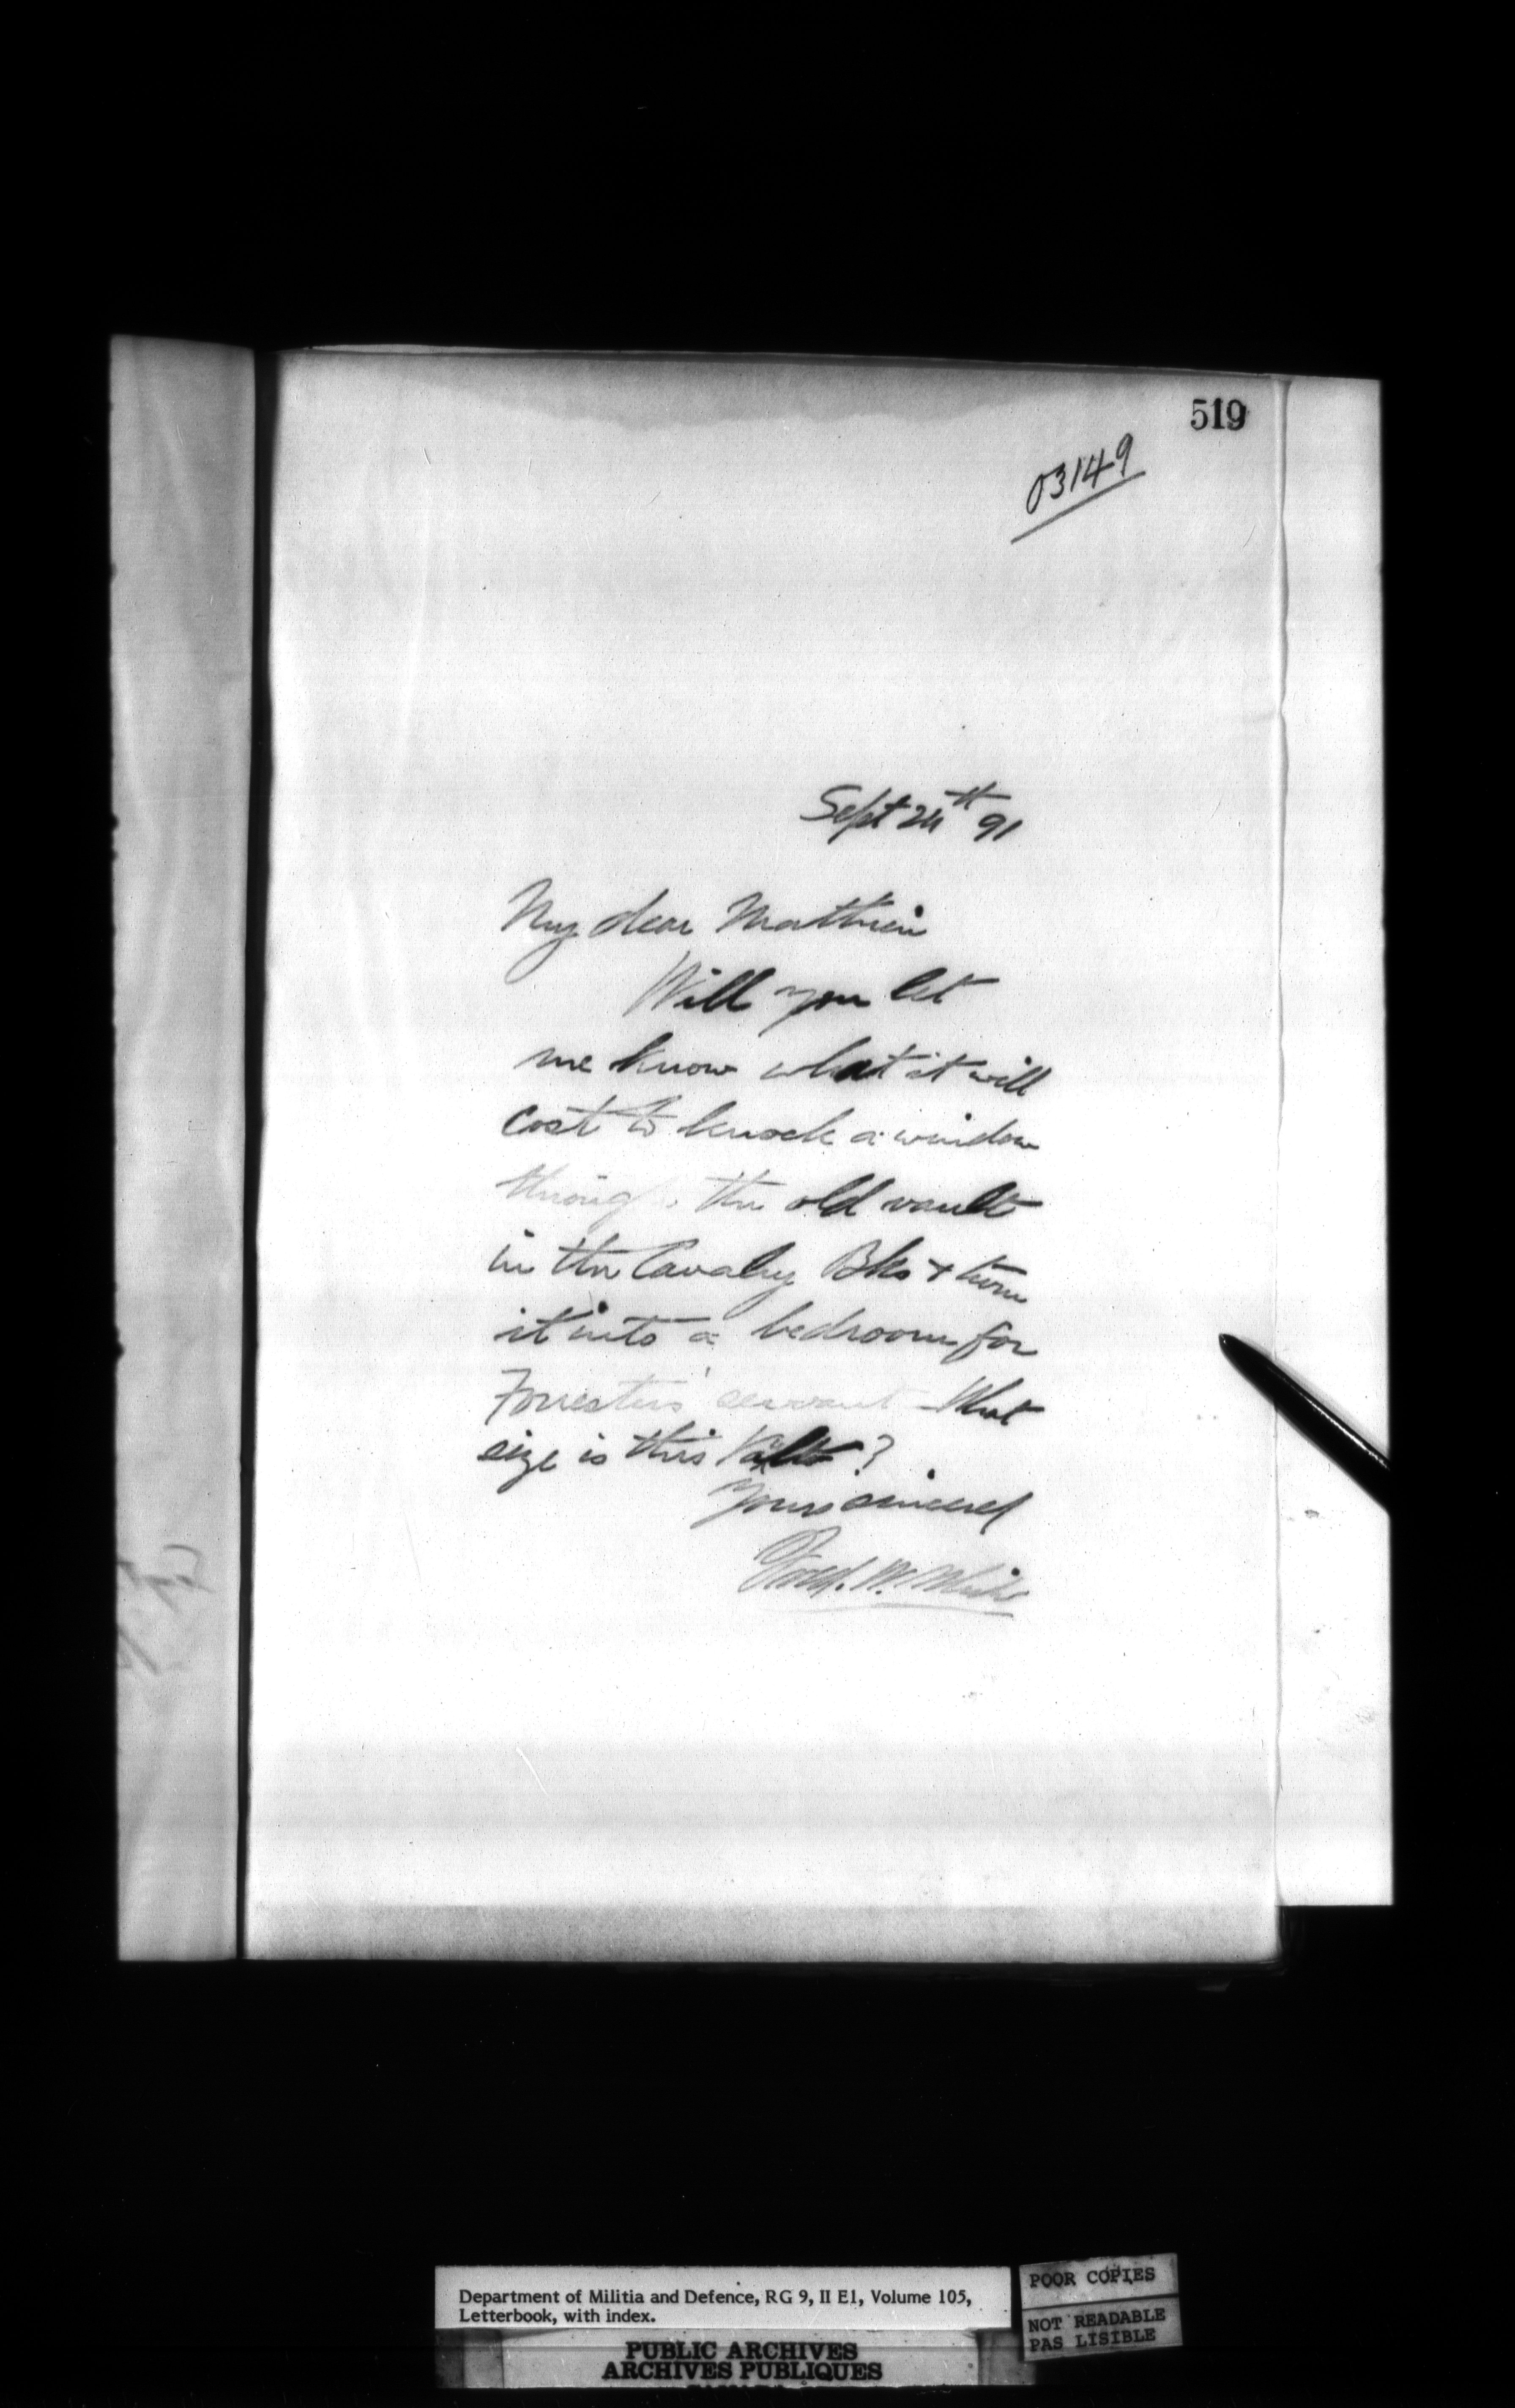 519
03149
Sept 24th 91
My dear Mathieu
Will you let
me know what it will
cost to knock a window
through the old vault
in the Cavalry Bks + turn
it into a bedroom for
Forresters' servant - What
size is this Vault?
Yours sincerel
Fred. W. White
Department of Militia and Defence, RG 9, II E1, Volume 105,
Letterbook, with index.
POOR COPIES
NOT READABLE
PAS LISIBLE
PUBLIC ARCHIVES
ARCHIVES PUBLIQUES